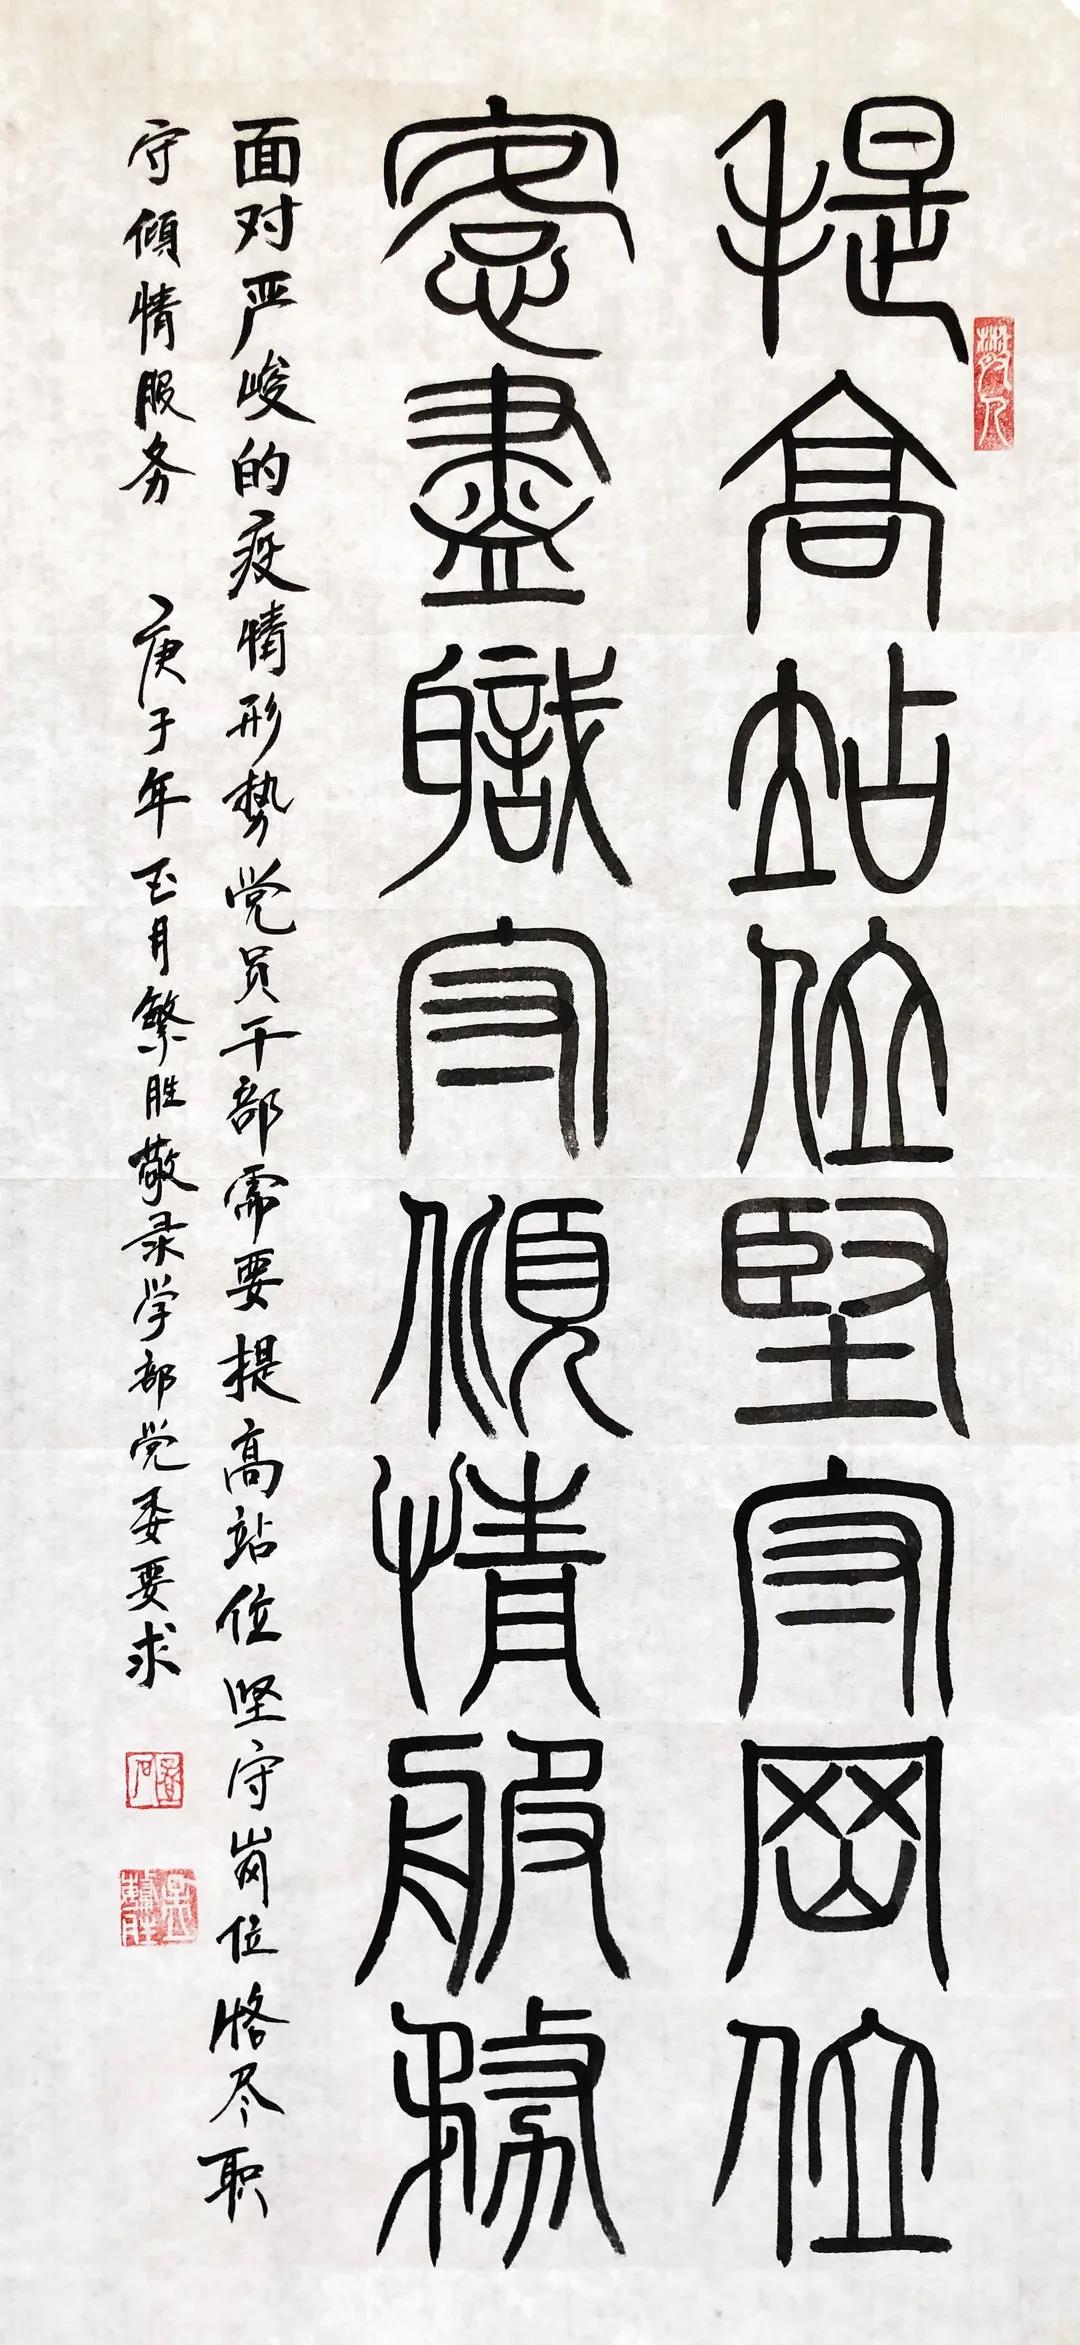 提高站位坚守岗位
愙盡職守傾情服務
面对严峻的疫情形势党员干部需要提高站位坚守岗位恪尽职
守倾情服务 庚子年正月繁胜敬录学部党委要求